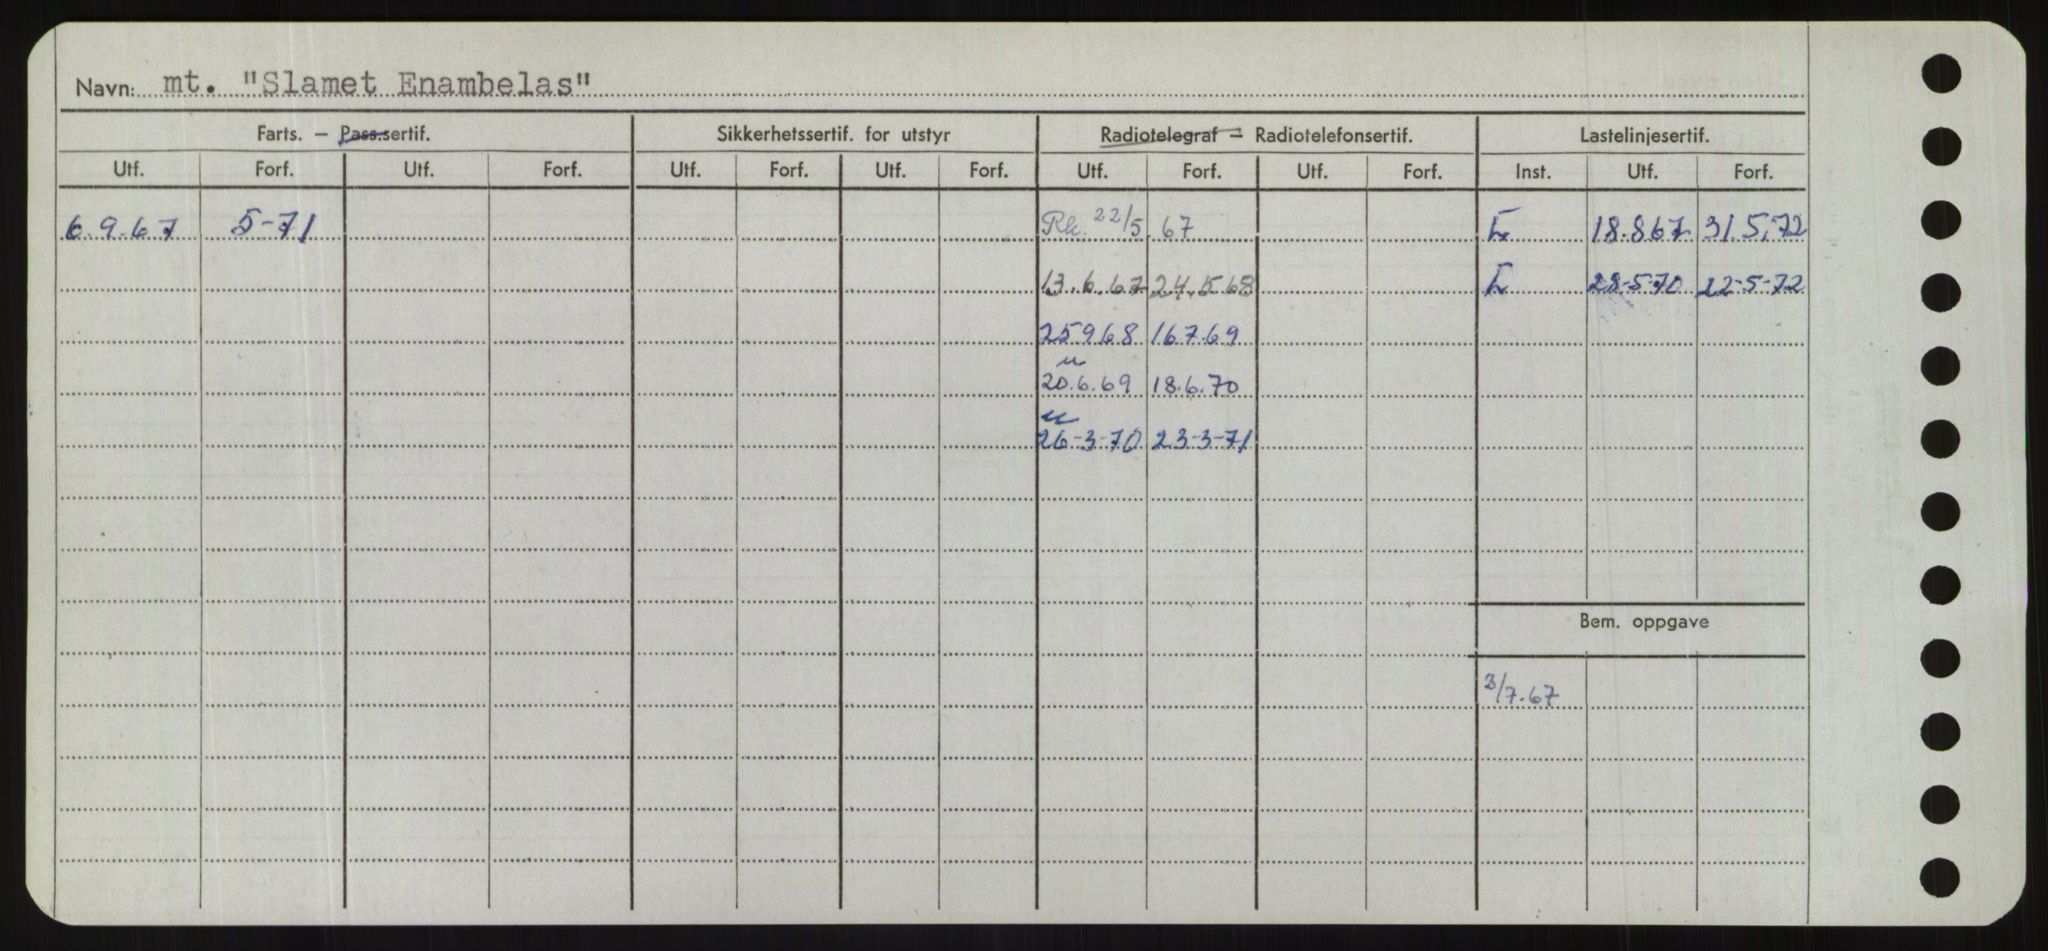 Navn: mt. "Slamet Enambelas"
Farts. — Pass.sertif. Sikkerhetssertif. for utstyr Radiotelegraf — Radiotelefonsertif. Lastelinjesertif.
Utf. Forf. Utf. Forf. Utf. Forf. Utf. Forf. Utf. Forf. Utf. Forf. Inst. Utf. Forf.
6.9.67 5-71 Rk. 22/5.67 18.867 31.5,72
13.6.67 24.568 28-5-70 22-5-72
25968 16769
20.6.69 18.6.70
26-3-70 23-3-71
Bem. oppgave
3/7.67